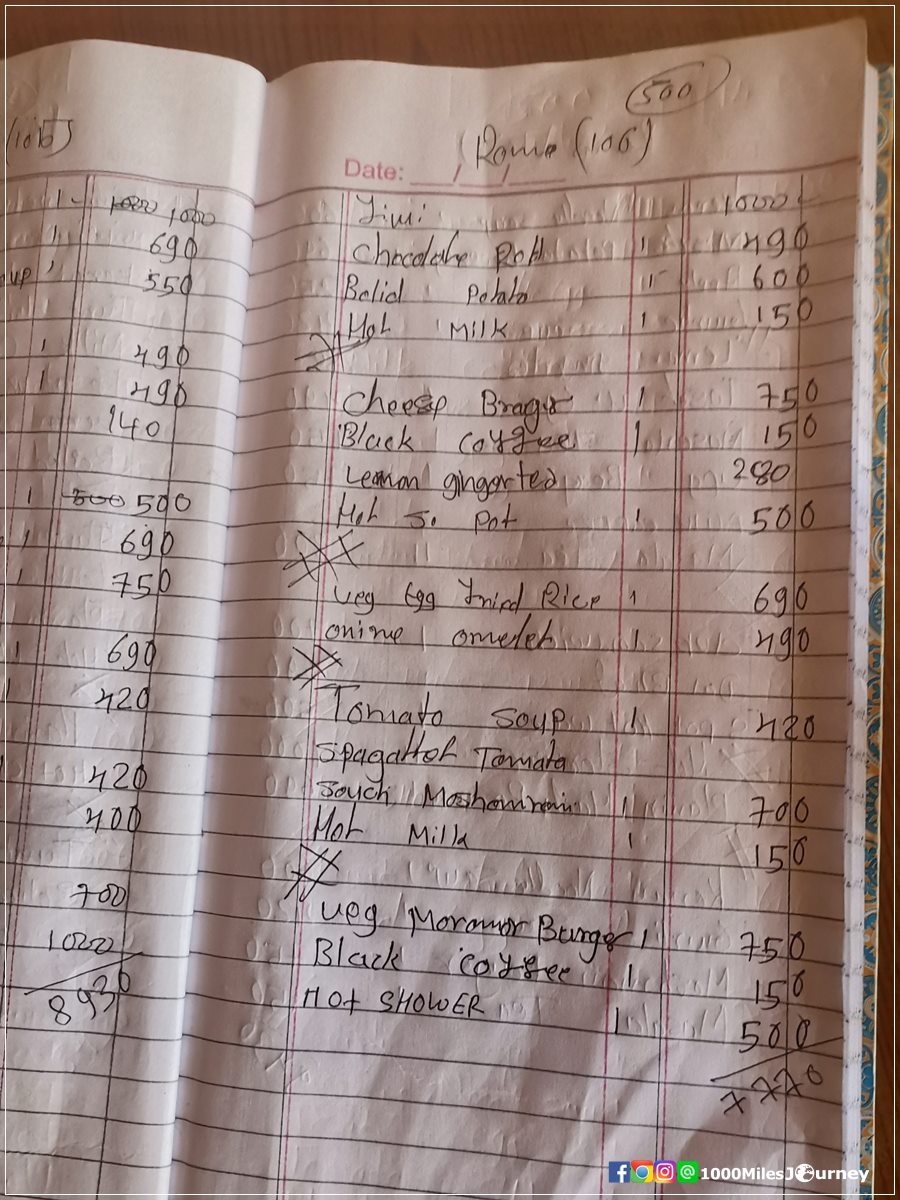 (106)
1 - 1000 1000
1 690
up 1 550
1 490
1 490
140
1 500 500
1 690
1 750
1 690
420
420
400
700
1000
8930
500
Rome (106)
Date: __/__/__
Jimi 1000
Chocolate Roll 1 490
Bolid Potato 11 600
Hot Milk 1 150
Cheesp Bragur 1 750
Black Coyfee 1 150
Lemon gingorted 280
Hot S. Pot 1 500
Veg Egg Fried Rice 1 690
onine omedeh 1 490
Tomato Soup 1 420
Spagattol Tomata
Souch Moshomrain 1 700
Hot Milk 1 150
Veg Moromor Burger 1 750
Black Coyfee 1 150
Hot SHOWER 1 500
7770
1000MilesJourney